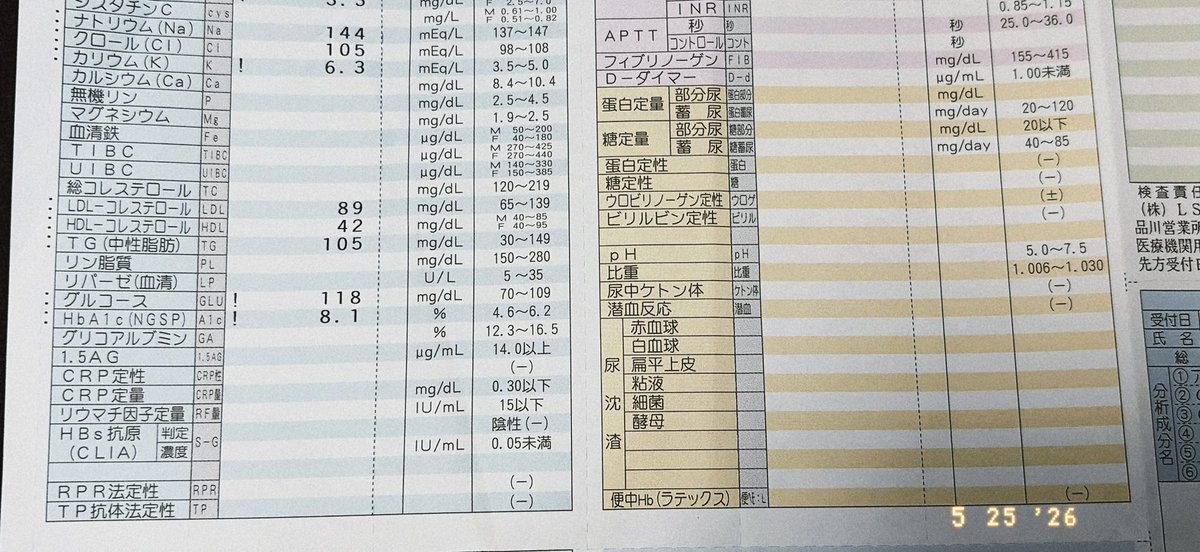 シスタチンC cys
ナトリウム(Na) Na 144 mEq/L 137～147
クロール(Cl) Cl 105 mEq/L 98～108
カリウム(K) K ! 6.3 mEq/L 3.5～5.0
カルシウム(Ca) Ca mg/dL 8.4～10.4
無機リン P mg/dL 2.5～4.5
マグネシウム Mg mg/dL 1.9～2.5
血清鉄 Fe μg/dL M 50～200 F 40～180
TIBC TIBC μg/dL M 270～425 F 270～440
UIBC UIBC μg/dL M 140～330 F 150～385
総コレステロール TC mg/dL 120～219
LDL-コレステロール LDL 89 mg/dL 65～139
HDL-コレステロール HDL 42 mg/dL M 40～85 F 40～95
TG(中性脂肪) TG 105 mg/dL 30～149
リン脂質 PL mg/dL 150～280
リパーゼ(血清) LP U/L 5～35
グルコース GLU ! 118 mg/dL 70～109
HbA1c(NGSP) A1c ! 8.1 % 4.6～6.2
グリコアルブミン GA % 12.3～16.5
1.5AG 1.5AG μg/mL 14.0以上
CRP定性 CRP性 (－)
CRP定量 CRP量 mg/dL 0.30以下
リウマチ因子定量 RF量 IU/mL 15以下
HBs抗原 判定 陰性(－)
(CLIA) 濃度 S-G IU/mL 0.05未満
RPR法定性 RPR (－)
TP抗体法定性 TP (－)
mg/L M 0.61～1.00 F 0.51～0.82
INR INR 0.85～1.15
APTT 秒 秒 秒 25.0～36.0
コントロール コント 秒
フィブリノーゲン FIB mg/dL 155～415
D-ダイマー D-d μg/mL 1.00未満
蛋白定量 部分尿 蛋白部分 mg/dL
蓄尿 蛋白蓄尿 mg/day 20～120
糖定量 部分尿 糖部分 mg/dL 20以下
蓄尿 糖蓄尿 mg/day 40～85
蛋白定性 蛋白 (－)
糖定性 糖 (－)
ウロビリノーゲン定性 ウロゲ (±)
ビリルビン定性 ビリル (－)
pH pH 5.0～7.5
比重 比重 1.006～1.030
尿中ケトン体 ケトン体 (－)
潜血反応 潜血 (－)
尿沈渣
赤血球
白血球
扁平上皮
粘液
細菌
酵母
便中Hb(ラテックス) (－)
検査責任
(株)LS
品川営業所
医療機関用
先方受付日
受付日
氏名
総
分析成分名
①ア
②
③
④
⑤
⑥
5 25 '26